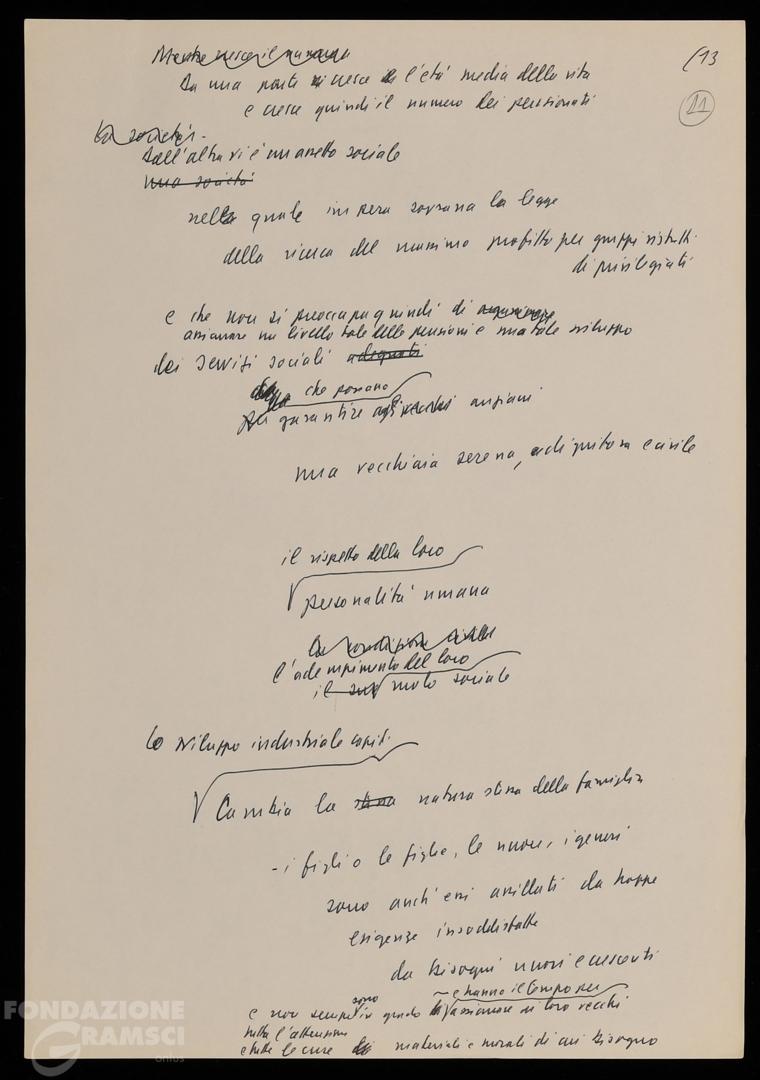 Mentre cresce il numero
(13
21
Da una parte si cresce l'età media della vita
e cresce quindi il numero dei pensionati
La società -
Dall'altra vi è un assetto sociale
una società
nella quale impera sovrana la legge
della ricerca del massimo profitto per gruppi ristretti
di privilegiati
e che non si preoccupa quindi di
assicurare un livello tale delle pensioni e una tale sviluppo
dei servizi sociali adeguati
che possano
per garantire agli vecchi anziani
una vecchiaia serena, dignitosa e civile
il rispetto della loro
personalità umana
la condizione civile
l'adempimento del loro
il suo ruolo sociale
Lo sviluppo industriale capit.
Cambia la stessa natura stessa della famiglia
- i figli o le figlie, le nuore, i generi
sono anch'essi assillati da troppe
esigenze insoddisfatte
da bisogni nuovi e crescenti
e hanno il tempo per
sono
e non sempre in grado di assicurare ai loro vecchi
tutta l'attenzione
e tutte le cure materiali e morali di cui bisogno
FONDAZIONE
GRAMSCI
onlus